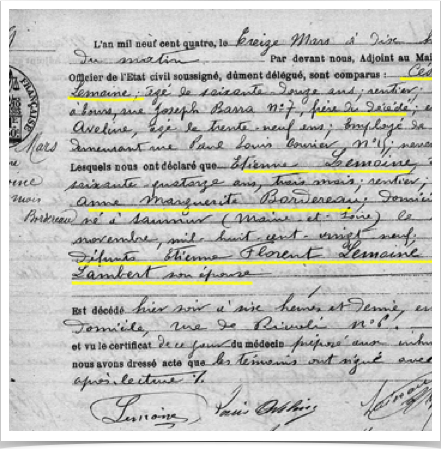 L'an mil neuf cent quatre, le treize Mars à dix h
du matin Par devant nous, Adjoint au Mai
Officier de l'Etat civil soussigné, dûment délégué, sont comparus : Ces
Lemaine; âgé de soixante douze ans; rentier;
à Tours, rue Joseph Barra N° 7, frère du décédé; e
Aveline, âgé de trente neuf ans; Employé
demeurant rue Paul Louis Courier, N° 1; neveu
Lesquels nous ont déclaré que Etienne Lemaine
soixante quatorze ans, trois mois; rentier,
Anne Marguerite Bordereau; domici
né à Saumur (Maine et Loire) le
novembre, mil huit cent vingt neuf,
défunts Etienne Florent Lemaine
Lambert son épouse
Est décédé hier soir à six heures et demie, en
domicile, rue de Rivoli N° 6.
et vu le certificat de ce jour du médecin préposé aux inhum
nous avons dressé acte que les témoins ont signé avec
après lecture ./.
Lemaine
FRANÇAISE
Mars
mois
Bordereau